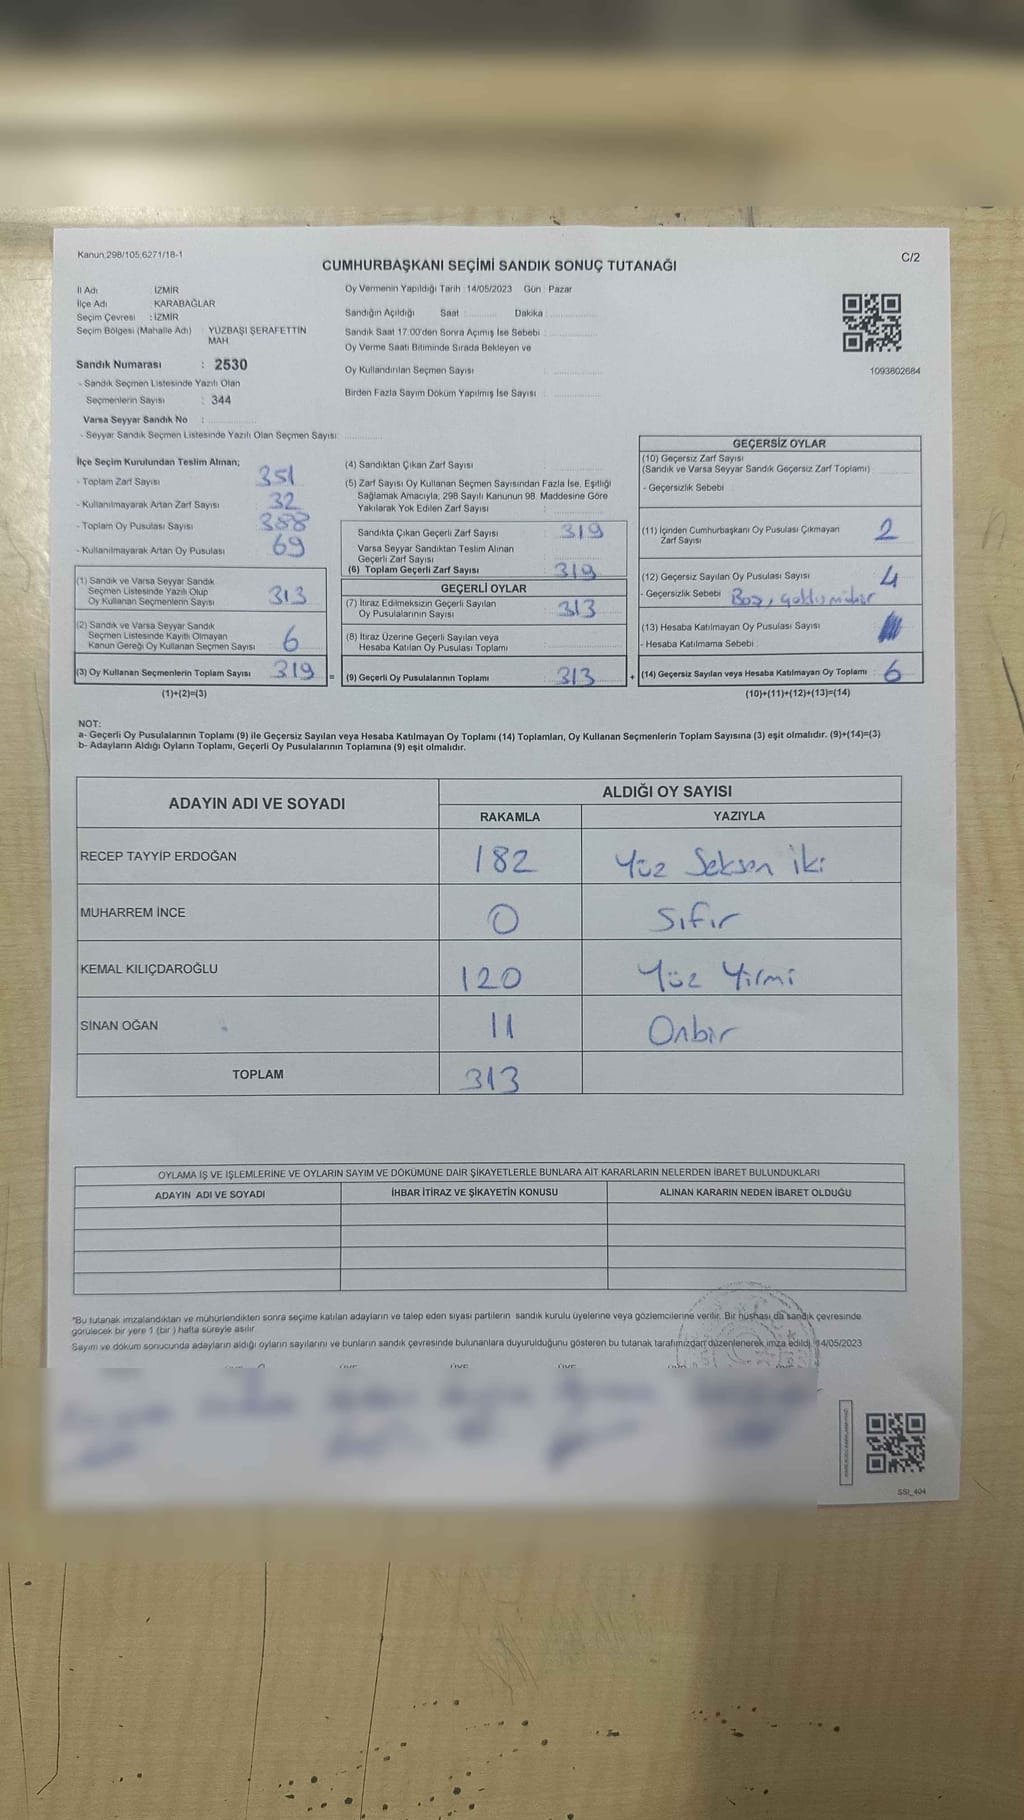 Kanun,298/105,6271/18-1
C/2
CUMHURBAŞKANI SEÇİMİ SANDIK SONUÇ TUTANAĞI
İl Adı : İZMİR
İlçe Adı : KARABAĞLAR
Seçim Çevresi : İZMİR
Seçim Bölgesi (Mahalle Adı) : YÜZBAŞI ŞERAFETTİN
MAH.
Sandık Numarası : 2530
- Sandık Seçmen Listesinde Yazılı Olan
Seçmenlerin Sayısı : 344
Varsa Seyyar Sandık No :
- Seyyar Sandık Seçmen Listesinde Yazılı Olan Seçmen Sayısı:
Oy Vermenin Yapıldığı Tarih : 14/05/2023 Gün : Pazar
Sandığın Açıldığı Saat Dakika
Sandık Saat 17.00'den Sonra Açımış İse Sebebi :
Oy Verme Saati Bitiminde Sırada Bekleyen ve
Oy Kullandırılan Seçmen Sayısı :
Birden Fazla Sayım Döküm Yapılmış İse Sayısı :
1093802684
İlçe Seçim Kurulundan Teslim Alınan;
- Toplam Zarf Sayısı 351
- Kullanılmayarak Artan Zarf Sayısı 32
- Toplam Oy Pusulası Sayısı 388
- Kullanılmayarak Artan Oy Pusulası 69
(1) Sandık ve Varsa Seyyar Sandık
Seçmen Listesinde Yazılı Olup
Oy Kullanan Seçmenlerin Sayısı 313
(2) Sandık ve Varsa Seyyar Sandık
Seçmen Listesinde Kayıtlı Olmayan
Kanun Gereği Oy Kullanan Seçmen Sayısı 6
(3) Oy Kullanan Seçmenlerin Toplam Sayısı 319
(1)+(2)=(3)
(4) Sandıktan Çıkan Zarf Sayısı :
(5) Zarf Sayısı Oy Kullanan Seçmen Sayısından Fazla İse, Eşitliği
Sağlamak Amacıyla, 298 Sayılı Kanunun 98. Maddesine Göre
Yakılarak Yok Edilen Zarf Sayısı :
Sandıkta Çıkan Geçerli Zarf Sayısı 319
Varsa Seyyar Sandıktan Teslim Alınan
Geçerli Zarf Sayısı
(6) Toplam Geçerli Zarf Sayısı 319
GEÇERLİ OYLAR
(7) İtiraz Edilmeksizin Geçerli Sayılan
Oy Pusulalarının Sayısı 313
(8) İtiraz Üzerine Geçerli Sayılan veya
Hesaba Katılan Oy Pusulası Toplamı
= (9) Geçerli Oy Pusulalarının Toplamı 313
GEÇERSİZ OYLAR
(10) Geçersiz Zarf Sayısı
(Sandık ve Varsa Seyyar Sandık Geçersiz Zarf Toplamı)
- Geçersizlik Sebebi
(11) İçinden Cumhurbaşkanı Oy Pusulası Çıkmayan
Zarf Sayısı 2
(12) Geçersiz Sayılan Oy Pusulası Sayısı 4
- Geçersizlik Sebebi Boş,
(13) Hesaba Katılmayan Oy Pusulası Sayısı
- Hesaba Katılmama Sebebi
+ (14) Geçersiz Sayılan veya Hesaba Katılmayan Oy Toplamı 6
(10)+(11)+(12)+(13)=(14)
NOT:
a- Geçerli Oy Pusulalarının Toplamı (9) ile Geçersiz Sayılan veya Hesaba Katılmayan Oy Toplamı (14) Toplamları, Oy Kullanan Seçmenlerin Toplam Sayısına (3) eşit olmalıdır. (9)+(14)=(3)
b- Adayların Aldığı Oyların Toplamı, Geçerli Oy Pusulalarının Toplamına (9) eşit olmalıdır.
ADAYIN ADI VE SOYADI
ALDIĞI OY SAYISI
RAKAMLA YAZIYLA
RECEP TAYYİP ERDOĞAN 182 Yüz Seksen iki
MUHARREM İNCE 0 Sıfır
KEMAL KILIÇDAROĞLU 120 Yüz Yirmi
SİNAN OĞAN 11 Onbir
TOPLAM 313
OYLAMA İŞ VE İŞLEMLERİNE VE OYLARIN SAYIM VE DÖKÜMÜNE DAİR ŞİKAYETLERLE BUNLARA AİT KARARLARIN NELERDEN İBARET BULUNDUKLARI
ADAYIN ADI VE SOYADI İHBAR İTİRAZ VE ŞİKAYETİN KONUSU ALINAN KARARIN NEDEN İBARET OLDUĞU
*Bu tutanak imzalandıktan ve mühürlendikten sonra seçime katılan adayların ve talep eden siyasi partilerin sandık kurulu üyelerine veya gözlemcilerine verilir. Bir nüshası da sandık çevresinde
görülecek bir yere 1 (bir ) hafta süreyle asılır
Sayım ve döküm sonucunda adayların aldığı oyların sayılarını ve bunların sandık çevresinde bulunanlara duyurulduğunu gösteren bu tutanak tarafımızdan düzenlenerek imza edildi. 14/05/2023
SSI_404